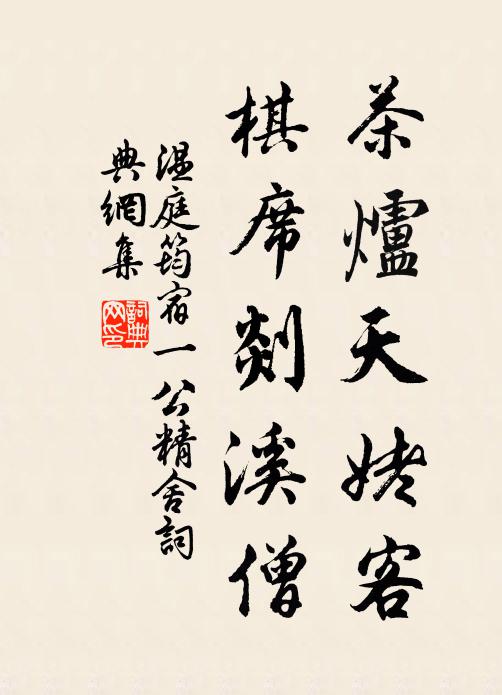 茶爐天姥客
棋席剡溪僧
溫庭筠宿一公精舍詞
典網集
詞典網印